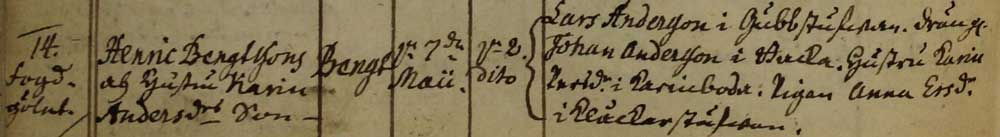 14. Fogd-
gölet.
Henric Bengtsons
och Hustru Karin
Andersdrs Son
Bengt
Maii.
dito
Lars Anderson i Gubbstufwan. dräng.
Johan Anderson i Hacka. Hustru Karin
Persdr. i Karinboda. Pigan Anna Ersdr.
i Klåckarstufwan.